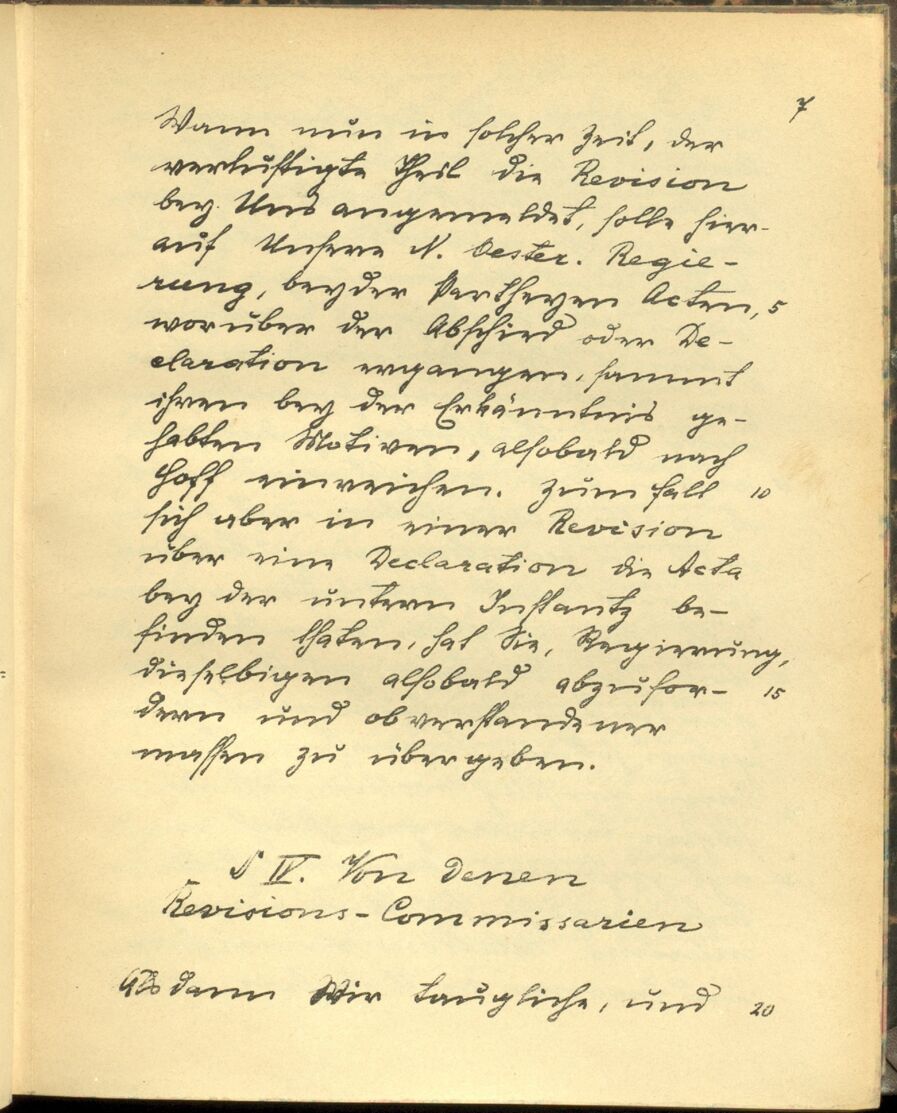 7
Wann nun in solcher Zeit, der
verlustigte Theil die Revision
bey Uns angemeldet, solle hier-
auf Unsere N. Oester. Regie-
rung, beyder Partheyen Acten, 5
worüber der Abschied oder De-
claration ergangen, sammt
ihren bey der Erkänntnis ge-
habten Motiven, alsobald nach
Hoff einreichen. Zum fall 10
sich aber in einer Revision
über eine Declaration die Acta
bey der untern Instantz be-
finden thäten, hat Sie, Regierung,
dieselbigen alsobald abzufor- 15
dern und obverstandener
massen zu übergeben.
§ IV. Von denen
Revisions-Commissarien
Als dann Wir taugliche, und 20